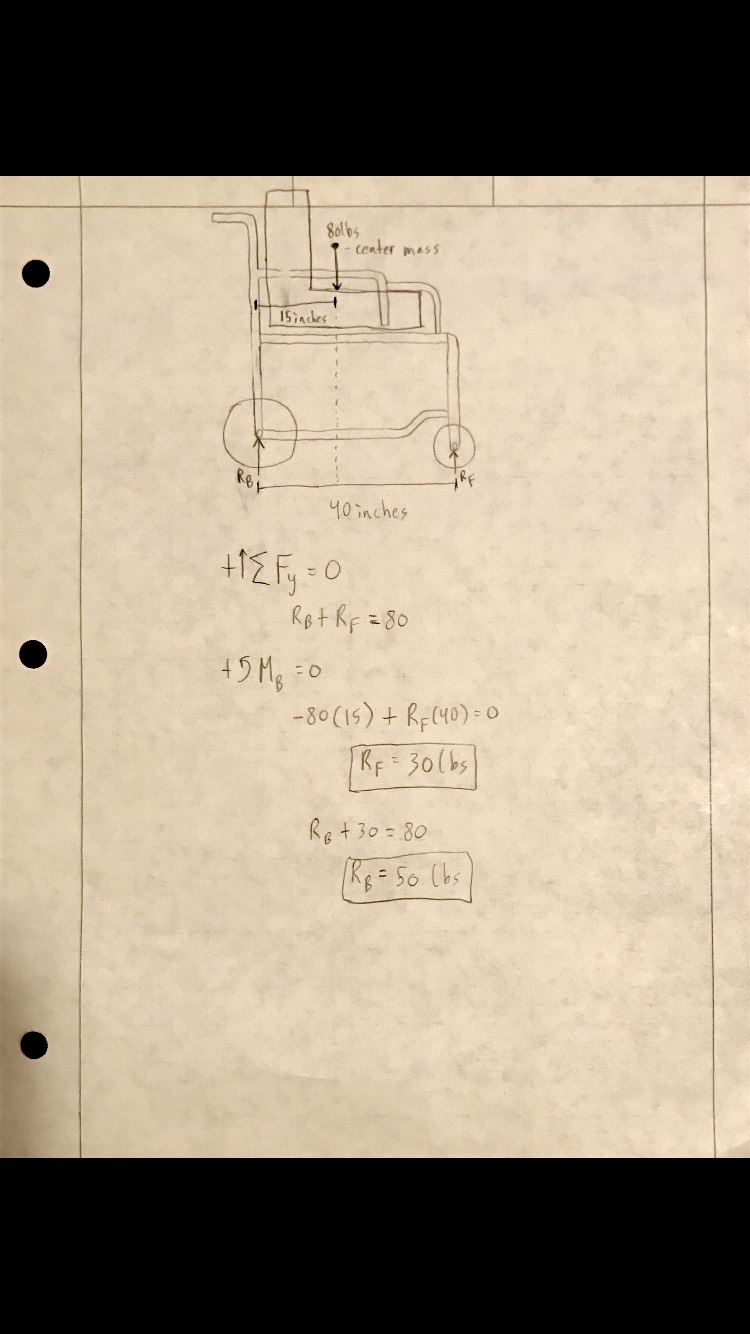 80lbs
- center mass
15 inches
R_B
R_F
40 inches
+↑ΣF_y = 0
R_B + R_F = 80
+↺M_B = 0
-80(15) + R_F(40) = 0
R_F = 30 lbs
R_B + 30 = 80
R_B = 50 lbs